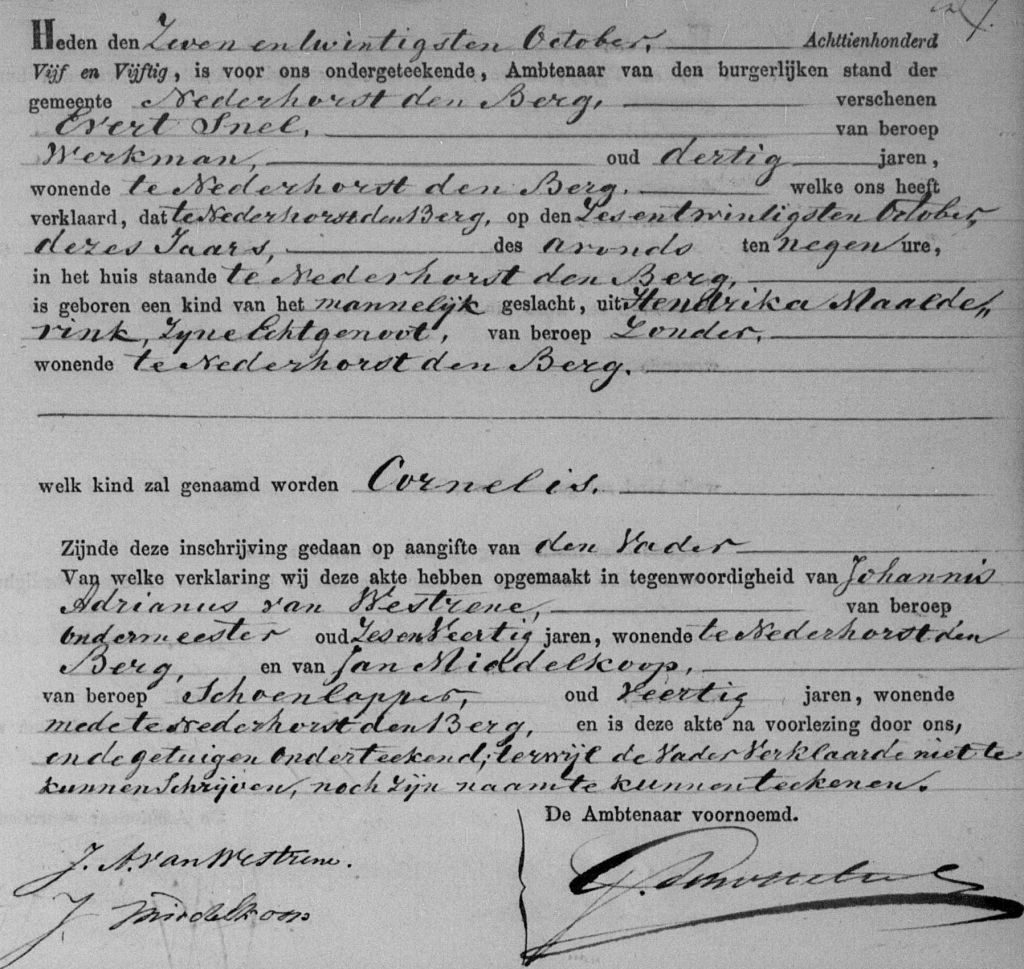 27.
Heden den Zeven en twintigsten October, Achttienhonderd
Vijf en Vijftig, is voor ons ondergeteekende, Ambtenaar van den burgerlijken stand der
gemeente Nederhorst den Berg, verschenen
Evert Snel, van beroep
Werkman, oud dertig jaren,
wonende te Nederhorst den Berg. welke ons heeft
verklaard, dat te Nederhorst den Berg, op den Zes en twintigsten October,
dezes Jaars, des avonds ten negen ure,
in het huis staande te Nederhorst den Berg,
is geboren een kind van het mannelijk geslacht, uit Hendrika Maalde„
rink, Zyne Echtgenoot, van beroep Zonder,
wonende te Nederhorst den Berg.
welk kind zal genaamd worden Cornelis.
Zijnde deze inschrijving gedaan op aangifte van den Vader
Van welke verklaring wij deze akte hebben opgemaakt in tegenwoordigheid van Johannis
Adrianus van Westrene, van beroep
ondermeester oud Zes en Veertig jaren, wonende te Nederhorst den
Berg, en van Jan Middelkoop,
van beroep Schoenlapper, oud Veertig jaren, wonende
mede te Nederhorst den Berg, en is deze akte na voorlezing door ons,
en de getuigen onderteekend; terwijl de Vader Verklaarde niet te
kunnen Schrijven, noch Zijn naam te kunnen teekenen.
De Ambtenaar voornoemd.
J. A. van Westrene.
J Middelkoop